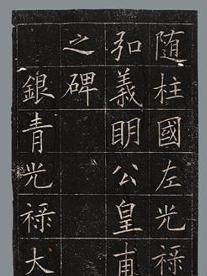 随柱國左光祿
弘義眀公皇甫
之碑
銀青光祿大